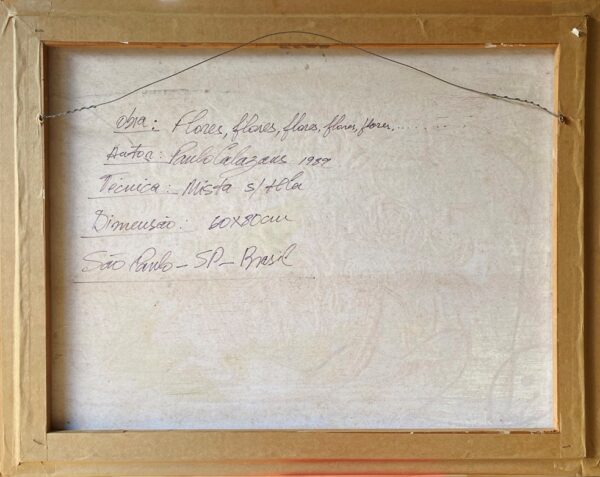 Obra: Flores, flores, flores, flores, flores, ........
Autor: Paulo Calazans 1989
Técnica: Mista s/ tela
Dimensão: 60x80cm
São Paulo - SP - Brasil